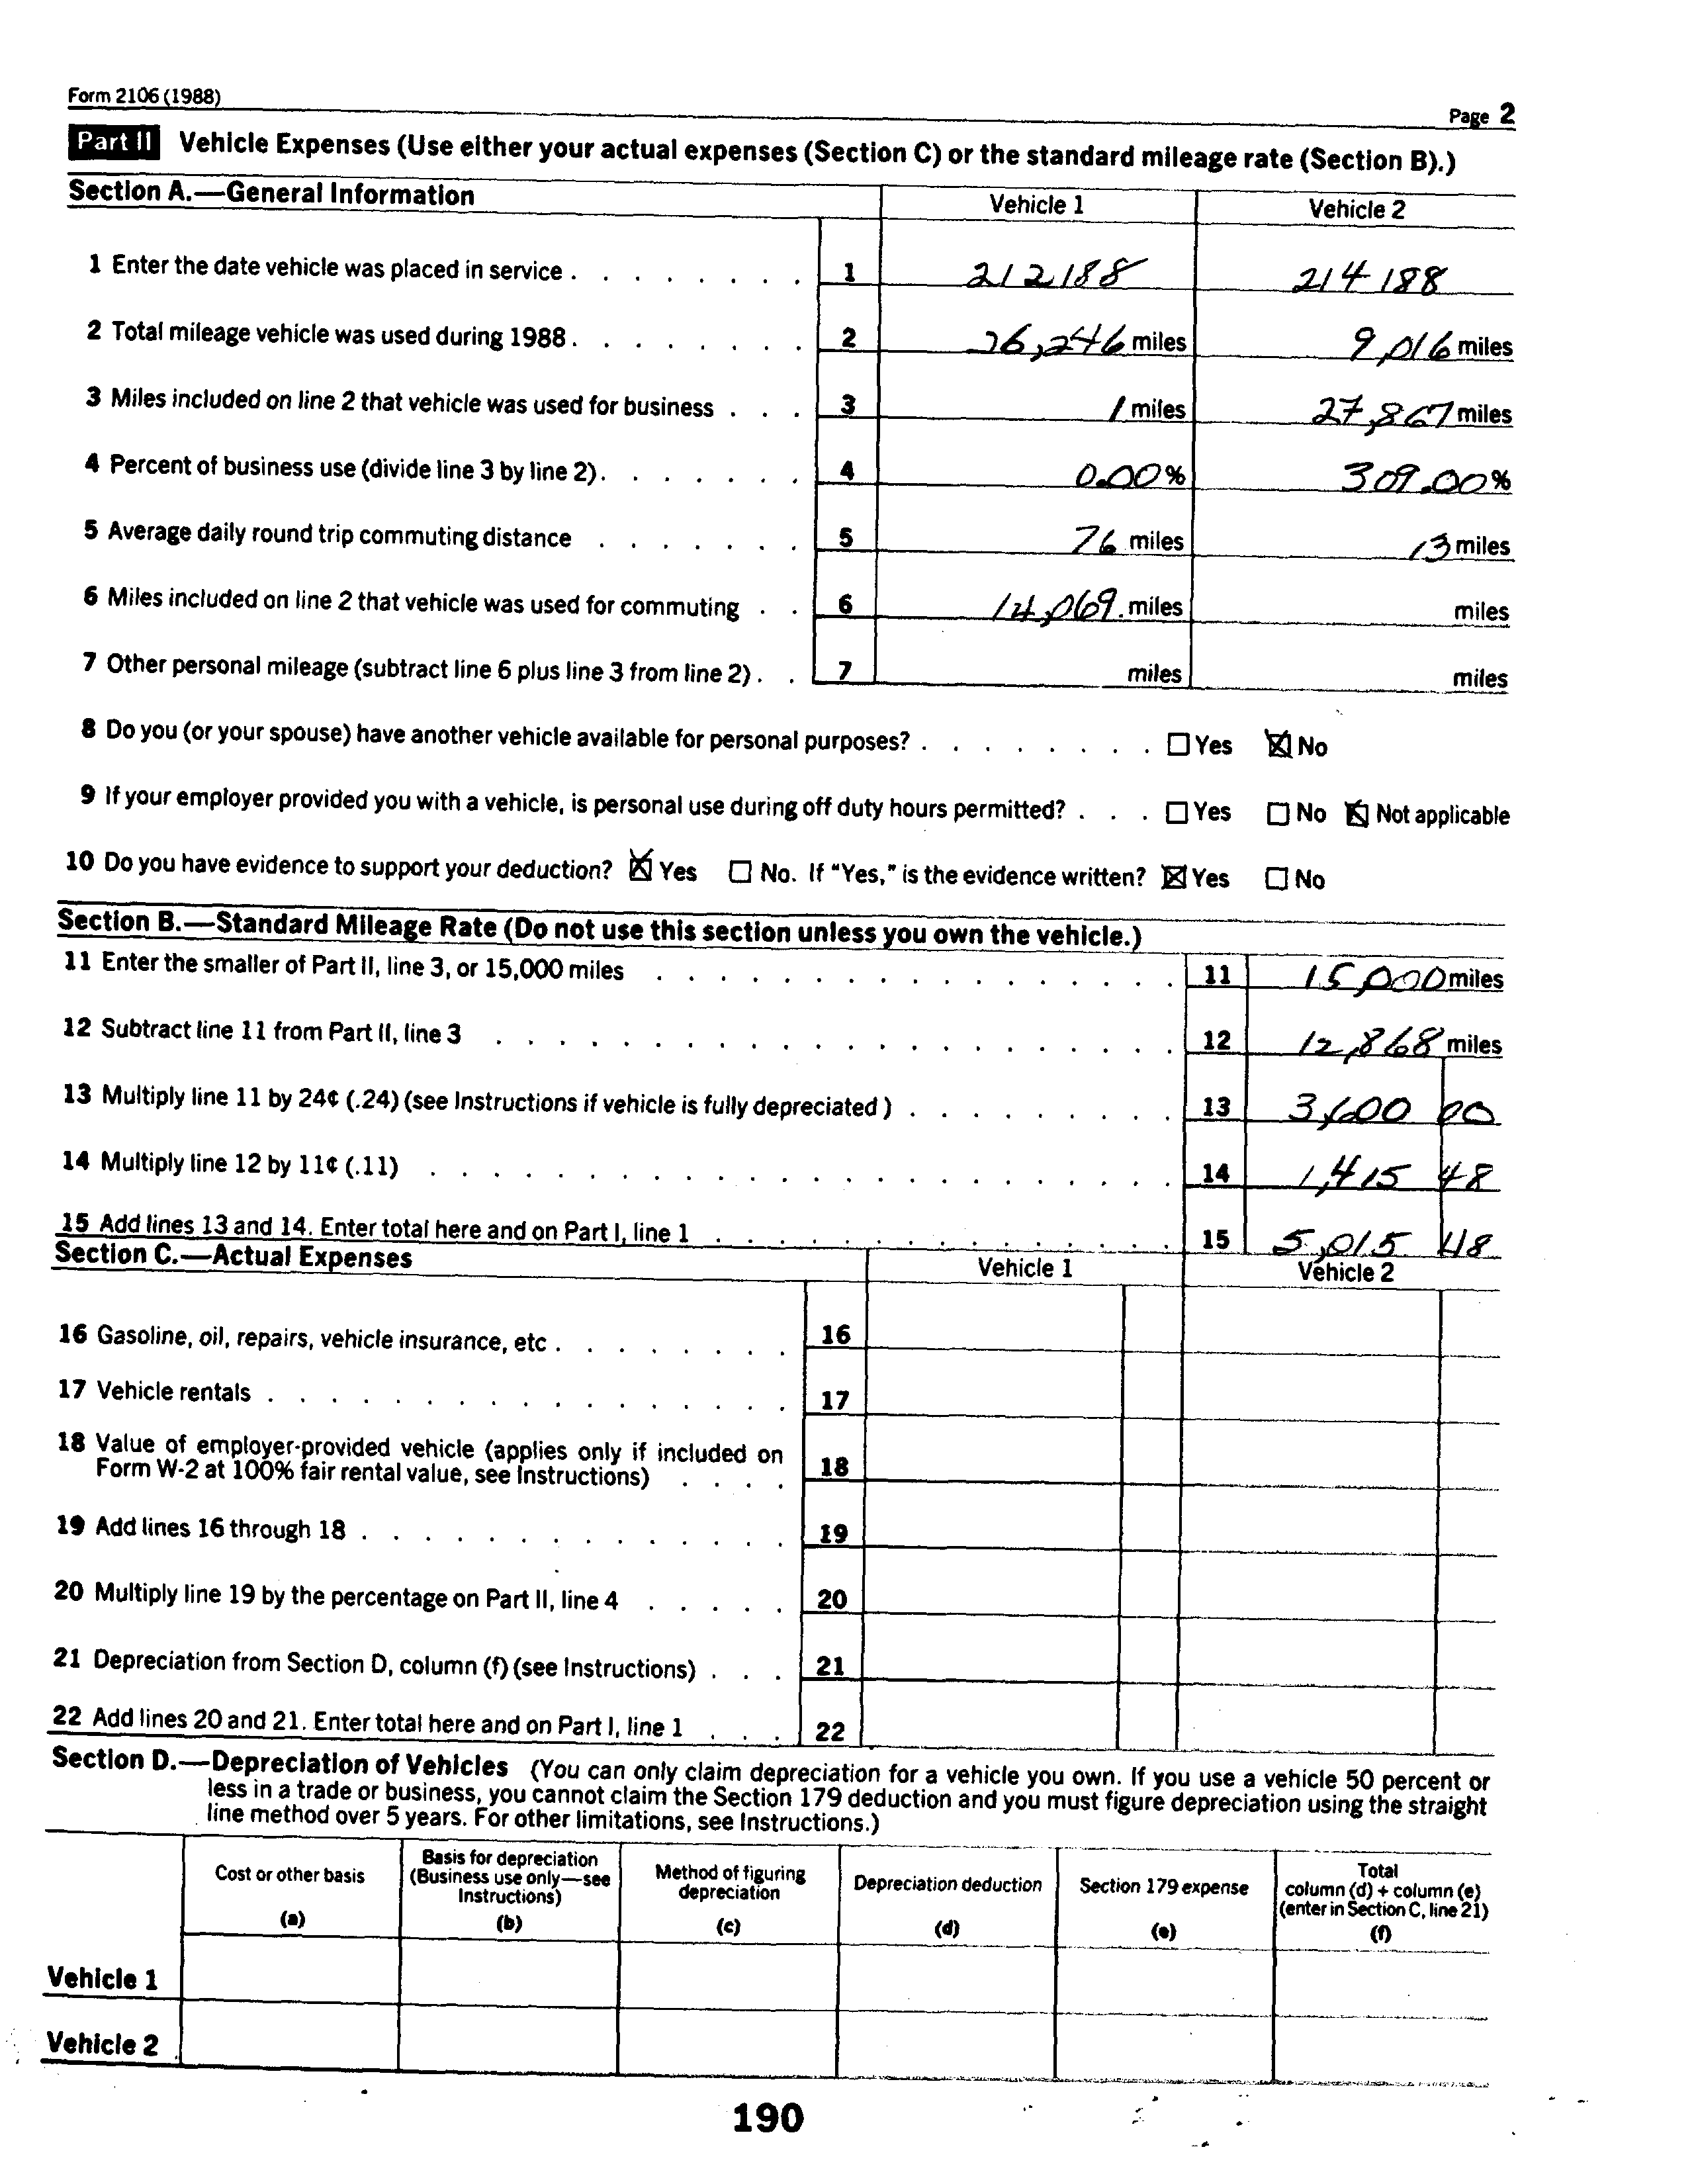 Form 2106 (1988)
Page 2
Part II Vehicle Expenses (Use either your actual expenses (Section C) or the standard mileage rate (Section B).)
Section A.—General Information Vehicle 1 Vehicle 2
1 Enter the date vehicle was placed in service . . . . . . . . 1 212188 214188
2 Total mileage vehicle was used during 1988 . . . . . . . . 2 26,246 miles 9,016 miles
3 Miles included on line 2 that vehicle was used for business . . . 3 1 miles 27,867 miles
4 Percent of business use (divide line 3 by line 2) . . . . . . . 4 0.00% 309.00%
5 Average daily round trip commuting distance . . . . . . . 5 76 miles 13 miles
6 Miles included on line 2 that vehicle was used for commuting . . 6 14,069. miles miles
7 Other personal mileage (subtract line 6 plus line 3 from line 2) . . 7 miles miles
8 Do you (or your spouse) have another vehicle available for personal purposes? . . . . . . . . ☐ Yes ☒ No
9 If your employer provided you with a vehicle, is personal use during off duty hours permitted? . . . ☐ Yes ☐ No ☒ Not applicable
10 Do you have evidence to support your deduction? ☒ Yes ☐ No. If "Yes," is the evidence written? ☒ Yes ☐ No
Section B.—Standard Mileage Rate (Do not use this section unless you own the vehicle.)
11 Enter the smaller of Part II, line 3, or 15,000 miles . . . . . . . . . . . . . . . . . 11 15,000 miles
12 Subtract line 11 from Part II, line 3 . . . . . . . . . . . . . . . . . . . . . . 12 12,868 miles
13 Multiply line 11 by 24¢ (.24) (see Instructions if vehicle is fully depreciated ) . . . . . . . . . 13 3,600 00
14 Multiply line 12 by 11¢ (.11) . . . . . . . . . . . . . . . . . . . . . . . . 14 1,415 48
15 Add lines 13 and 14. Enter total here and on Part I, line 1 . . . . . . . . . . . . . . . 15 5,015 48
Section C.—Actual Expenses Vehicle 1 Vehicle 2
16 Gasoline, oil, repairs, vehicle insurance, etc . . . . . . . . 16
17 Vehicle rentals . . . . . . . . . . . . . . . . . 17
18 Value of employer-provided vehicle (applies only if included on
Form W-2 at 100% fair rental value, see Instructions) . . . . 18
19 Add lines 16 through 18 . . . . . . . . . . . . . . 19
20 Multiply line 19 by the percentage on Part II, line 4 . . . . . 20
21 Depreciation from Section D, column (f) (see Instructions) . . . 21
22 Add lines 20 and 21. Enter total here and on Part I, line 1 . . . 22
Section D.—Depreciation of Vehicles (You can only claim depreciation for a vehicle you own. If you use a vehicle 50 percent or
less in a trade or business, you cannot claim the Section 179 deduction and you must figure depreciation using the straight
line method over 5 years. For other limitations, see Instructions.)
Cost or other basis
(a)
Basis for depreciation
(Business use only—see
Instructions)
(b)
Method of figuring
depreciation
(c)
Depreciation deduction
(d)
Section 179 expense
(e)
Total
column (d) + column (e)
(enter in Section C, line 21)
(f)
Vehicle 1
Vehicle 2
190